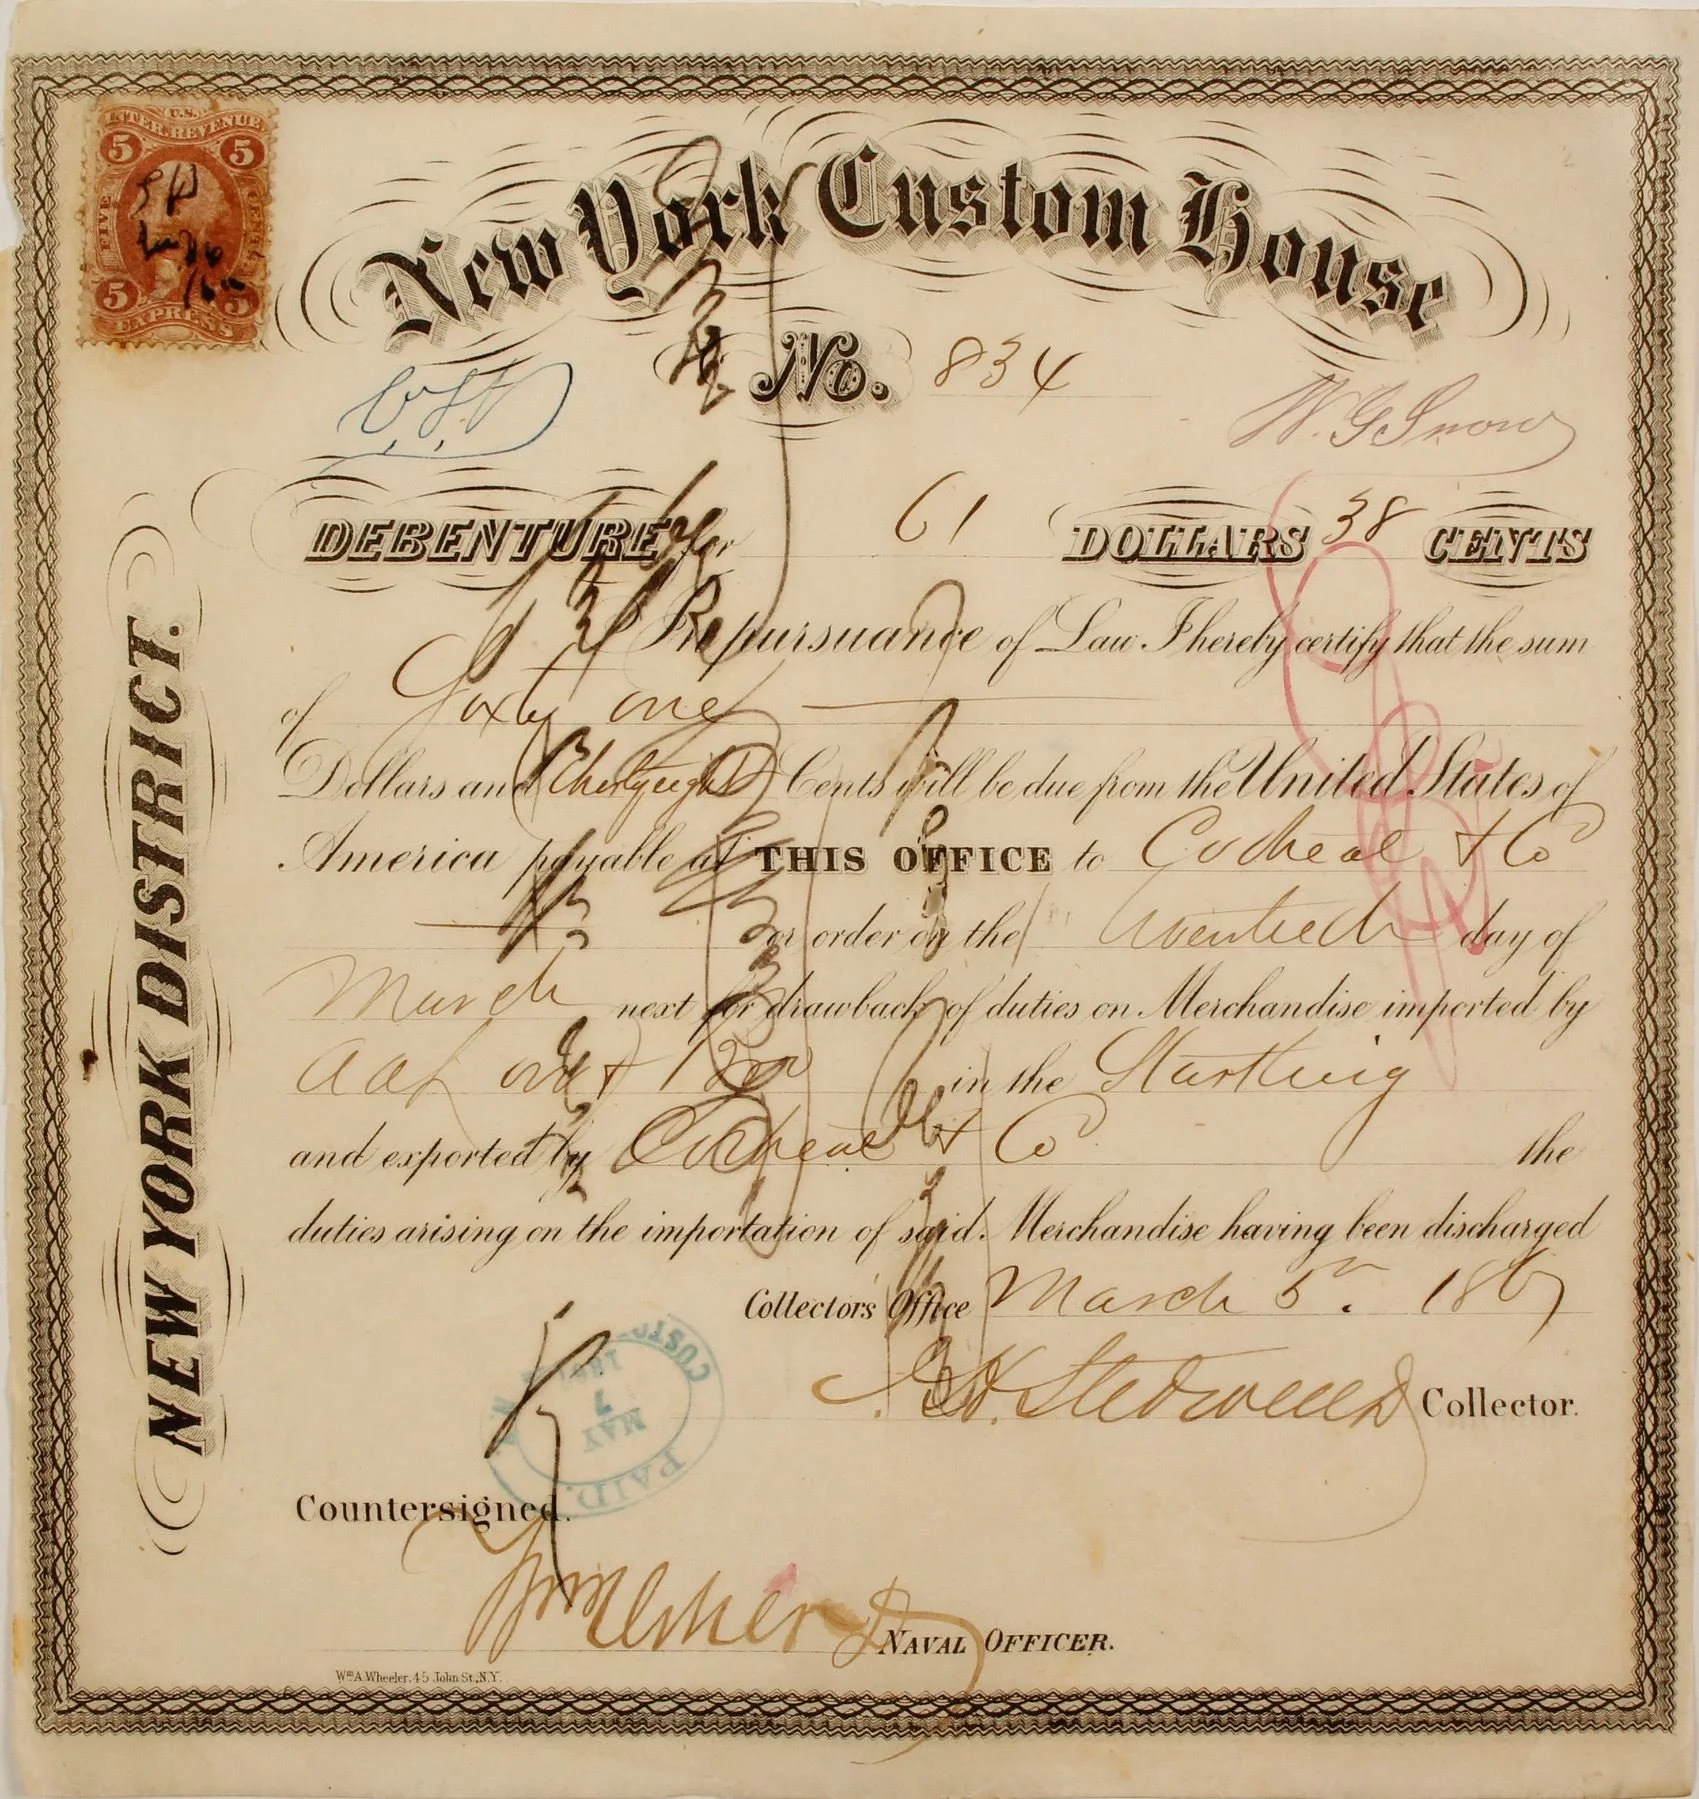 U.S.
INTER. REVENUE
5 5
FIVE CENTS
5 5
EXPRESS
New York Custom House
No. 834
W. G. Snow
DEBENTURE for 61 DOLLARS 38 CENTS
NEW YORK DISTRICT.
In pursuance of Law I hereby certify that the sum
of Sixty one
Dollars and Thirty eight Cents will be due from the United States of
America payable at THIS OFFICE to Cocheal & Co
or order on the day of
March next for drawback of duties on Merchandise imported by
& Bro in the
and exported by Cocheal & Co the
duties arising on the importation of said Merchandise having been discharged
Collector's Office March 5th. 1867
Collector.
CUSTO
MAY
7
PAID.
Countersigned.
NAVAL OFFICER.
Wm. A. Wheeler. 45 John St., N.Y.